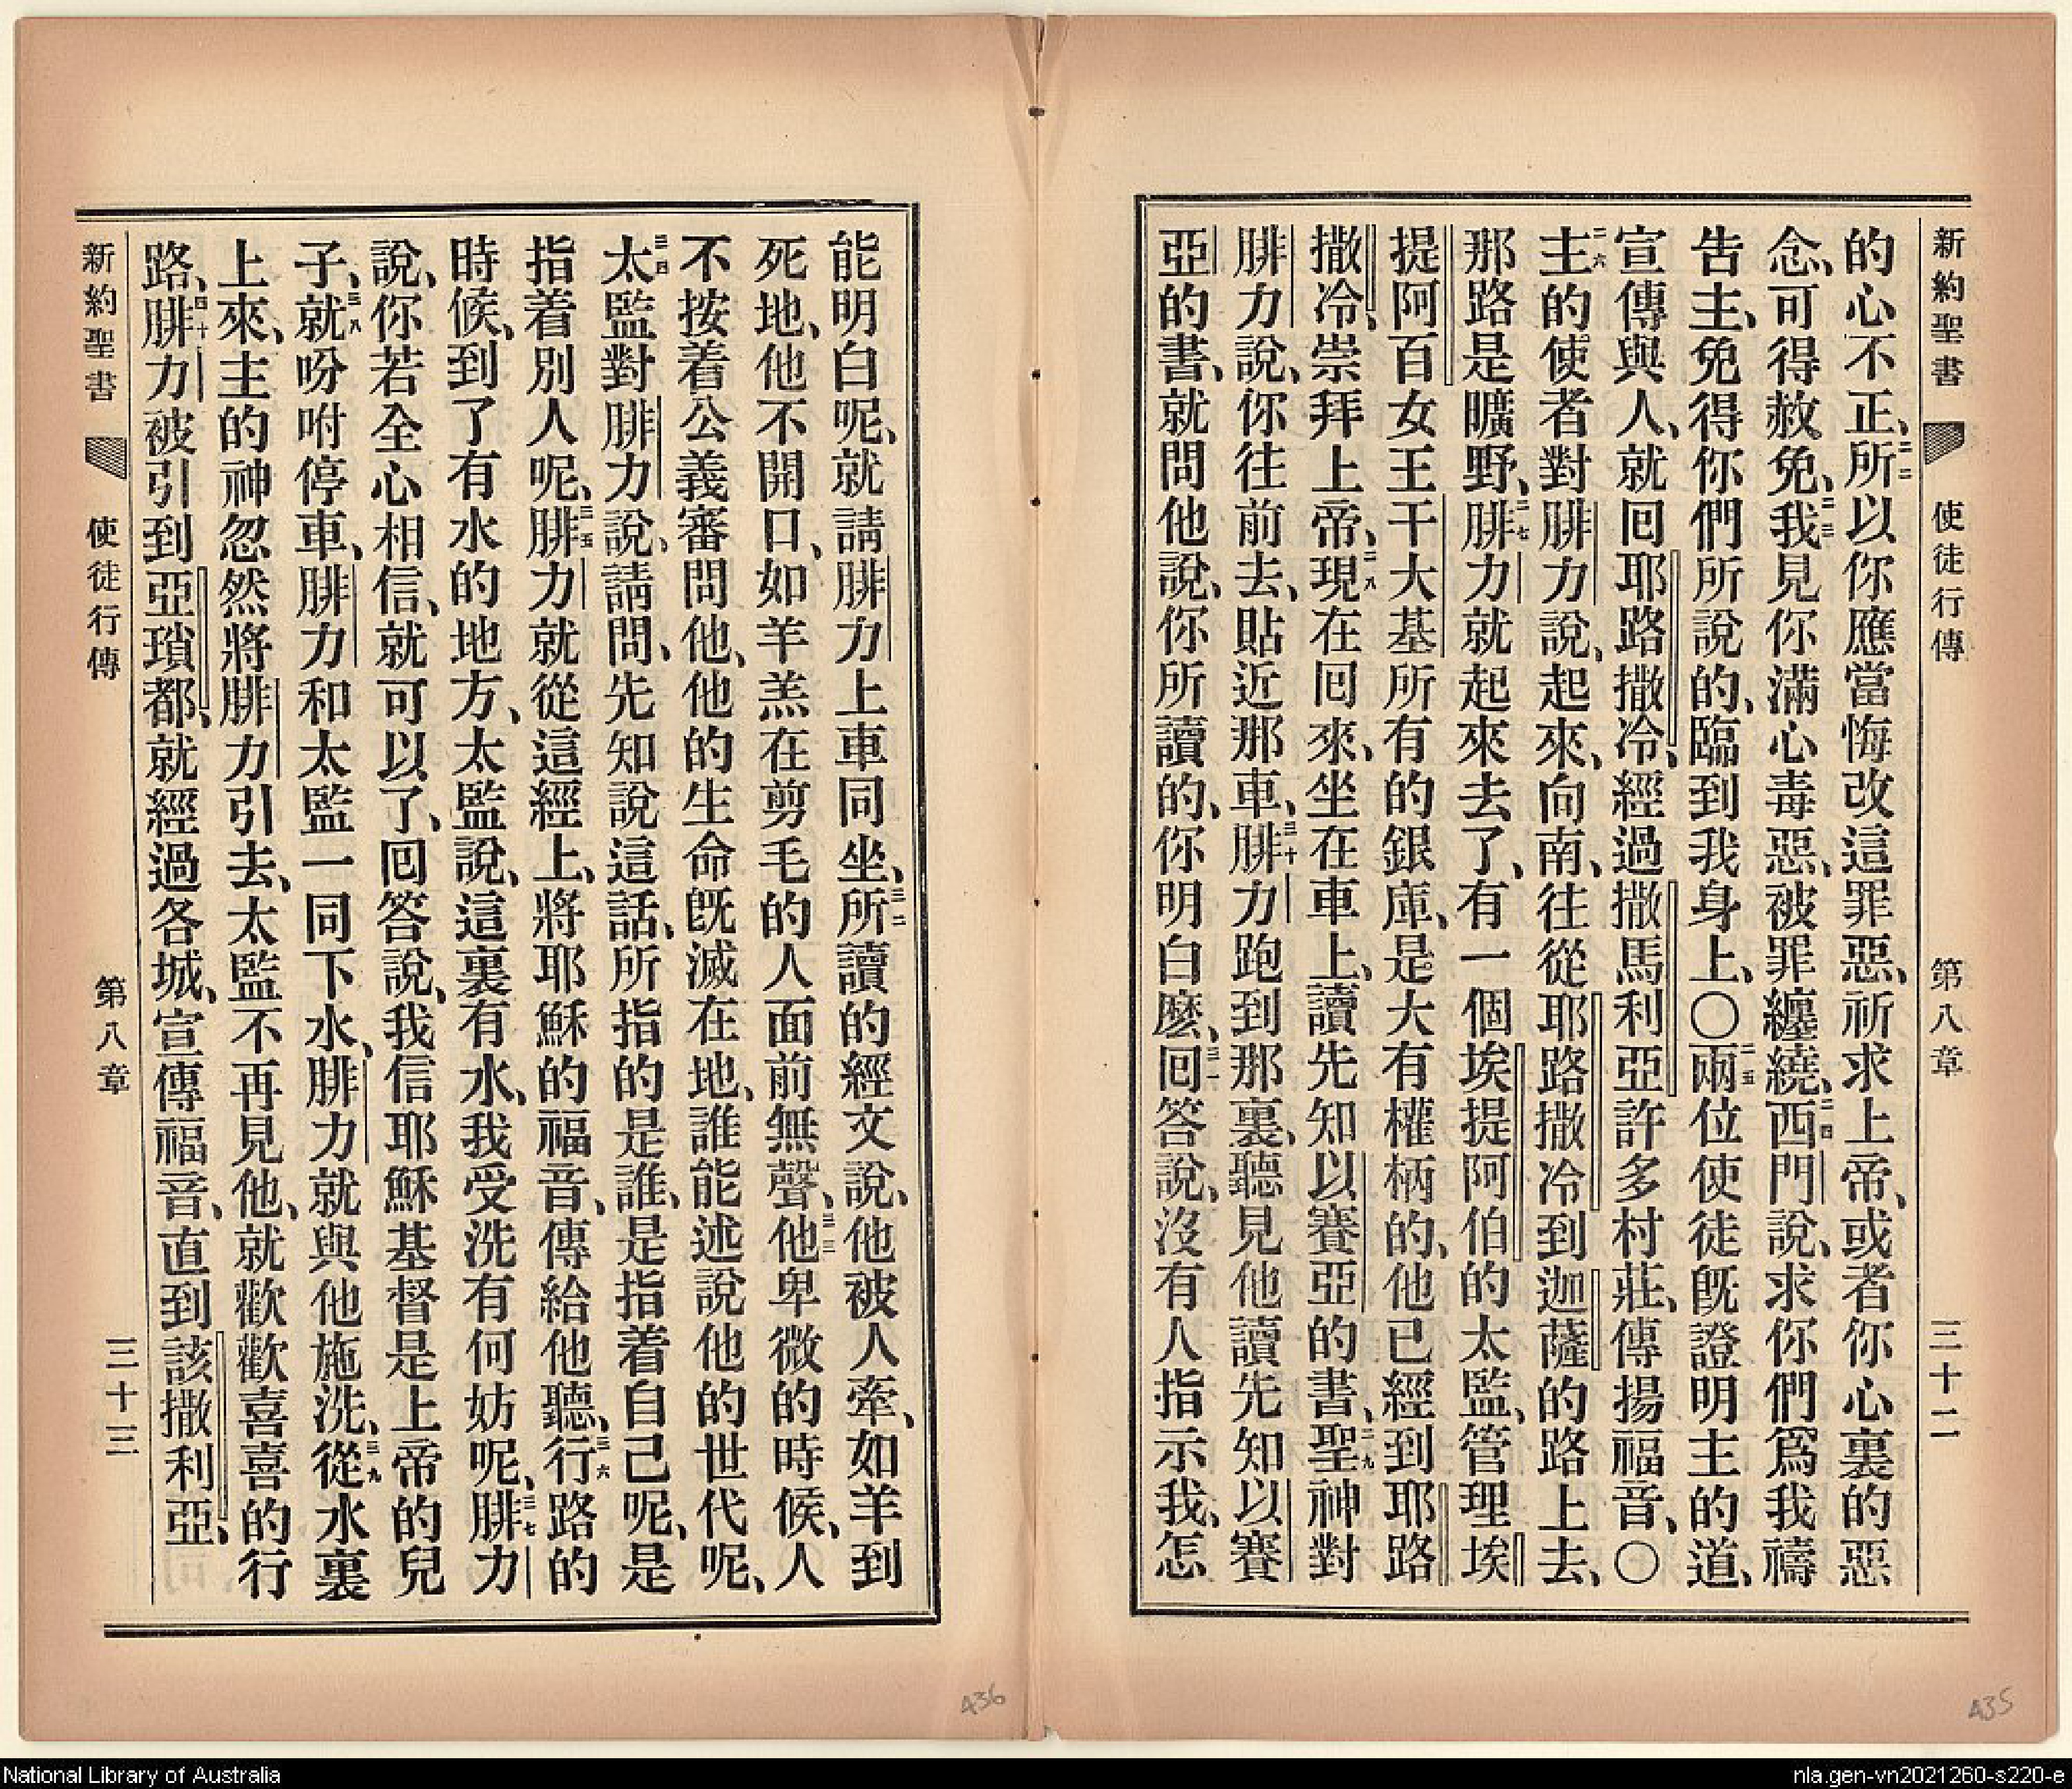 新約聖書 使徒行傳 第八章 三十二
的心不正、二二所以你應當悔改這罪惡、祈求上帝、或者你心裏的惡
念、可得赦免、二三我見你滿心毒惡、被罪纏繞、二四西門說、求你們爲我禱
告主、免得你們所說的、臨到我身上、〇二五兩位使徒旣證明主的道、
宣傳與人、就回耶路撒冷、經過撒馬利亞許多村莊、傳揚福音、〇
二六主的使者對腓力說、起來、向南、往從耶路撒冷到迦薩的路上去、
那路是曠野、二七腓力就起來去了、有一個埃提阿伯的太監、管理埃
提阿百女王干大基所有的銀庫、是大有權柄的、他已經到耶路
撒冷、崇拜上帝、二八現在回來、坐在車上、讀先知以賽亞的書、二九聖神對
腓力說、你往前去、貼近那車、三十腓力跑到那裏、聽見他讀先知以賽
亞的書、就問他說、你所讀的、你明白麽、三一回答說、沒有人指示我、怎
能明白呢、就請腓力上車同坐、三二所讀的經文說、他被人牽、如羊到
死地、他不開口、如羊羔在剪毛的人面前無聲、三三他卑微的時候、人
不按着公義審問他、他的生命旣滅在地、誰能述說他的世代呢、
三四太監對腓力說、請問、先知說這話、所指的是誰、是指着自己呢、是
指着別人呢、三五腓力就從這經上、將耶穌的福音、傳給他聽、三六行路的
時候、到了有水的地方、太監說、這裏有水、我受洗有何妨呢、三七腓力
說、你若全心相信、就可以了、回答說、我信耶穌基督是上帝的兒
子、三八就吩咐停車、腓力和太監一同下水、腓力就與他施洗、三九從水裏
上來、主的神忽然將腓力引去、太監不再見他、就歡歡喜喜的行
路、四十腓力被引到亞瑣都、就經過各城、宣傳福音、直到該撒利亞、
新約聖書 使徒行傳 第八章 三十三
436
435
National Library of Australia
nla.gen-vn2021260-s220-e